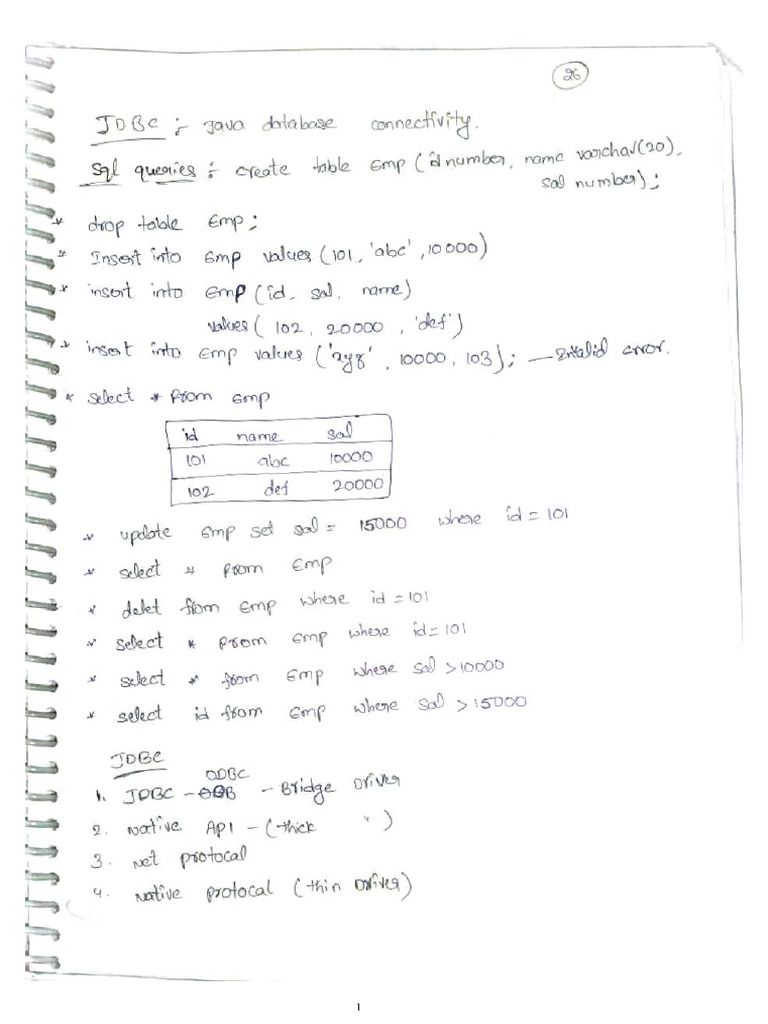 26
JDBC :- Java database connectivity.
Sql queries :- create table Emp (id number, name varchar(20),
sal number);
* drop table Emp;
* Insert into Emp values (101, 'abc', 10000)
* insert into Emp (id, sal, name)
values (102, 20000, 'def')
* insert into Emp values ('xyz', 10000, 103); — Invalid error.
* select * from Emp
id name sal
101 abc 10000
102 def 20000
* update Emp set sal = 15000 where id = 101
* select * from Emp
* delet from Emp where id = 101
* select * from Emp where id = 101
* select * from Emp where sal > 10000
* select id from Emp where sal > 15000
JDBC
ODBC
1. JDBC - - Bridge Driver
2. Native API - (thick " )
3. Net protocal
4. Native protocal (thin Driver)
1